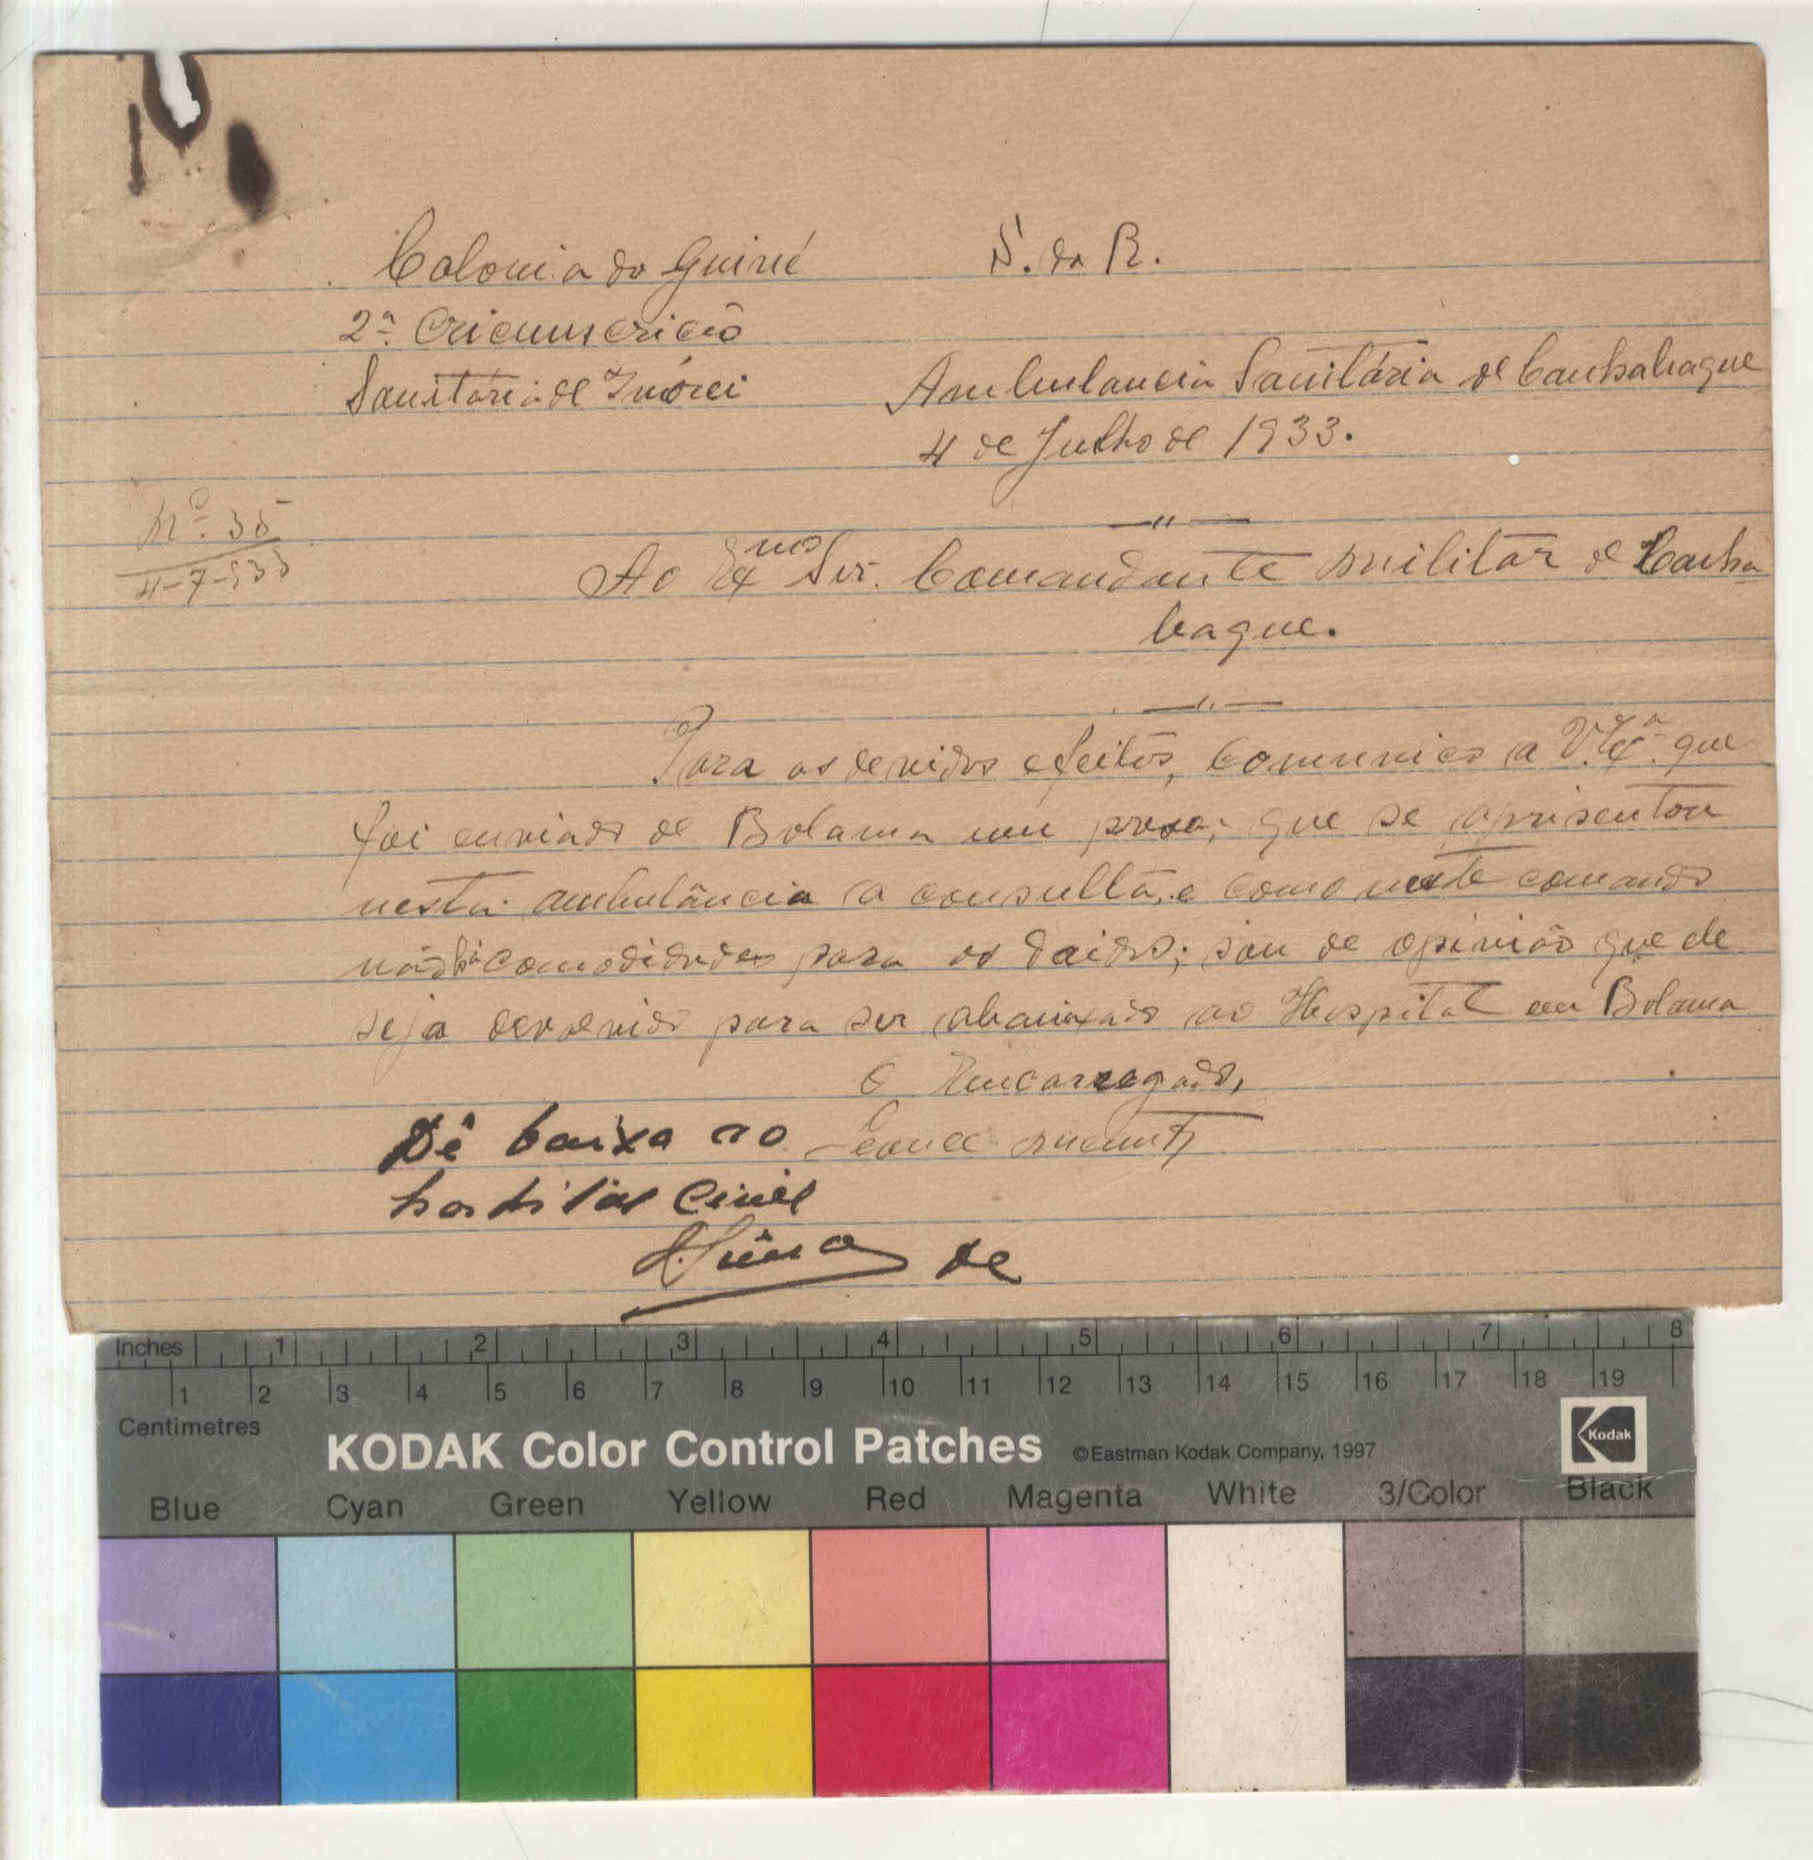 Colonia da Guiné
S. da R.
2ª Cricunscricão
Sanitária de
Ambulancia Sanitária de Canhabaque
4 de Julho de 1933.
Nº. 35
4-7-933
Ao Exmo Snr. Comandante militar de Canha
baque.
Para os devidos efeitos, comunico a V. Exª. que
foi enviado de Bolama um preso, que se aprisentou
nesta ambulância a consulta, e como neste comando
não há comodidades para os doidos; sou de opinião que ele
seja devolvido para ser abaixado ao Hospital em Bolama
O Encarregado,
Dê baixa ao
hospital Civil
de
Inches 1 2 3 4 5 6 7 8
1 2 3 4 5 6 7 8 9 10 11 12 13 14 15 16 17 18 19
Centimetres
KODAK Color Control Patches ©Eastman Kodak Company, 1997 Kodak
Blue Cyan Green Yellow Red Magenta White 3/Color Black